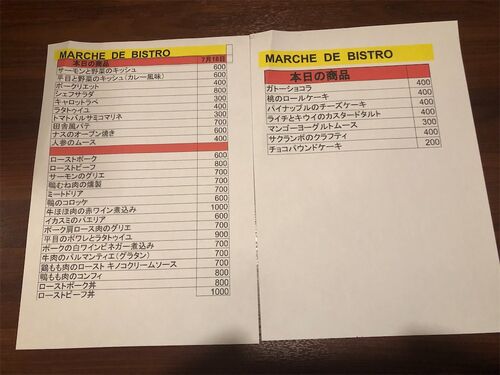 MARCHE DE BISTRO
本日の商品 7月18日
サーモンと野菜のキッシュ 600
平目と野菜のキッシュ(カレー風味) 600
ポークリエット 400
シェフサラダ 400
キャロットラペ 300
ラタトゥイユ 400
トマトバルサミコマリネ 300
田舎風パテ 700
ナスのオーブン焼き 400
人参のムース 400
ローストポーク 600
ローストビーフ 800
サーモンのグリエ 700
鴨むね肉の燻製 700
ミートドリア 700
鴨のコロッケ 600
牛ほほ肉の赤ワイン煮込み 1000
イカスミのパエリア 600
ポーク肩ロース肉のグリエ 700
平目のポワレとラタトゥイユ 900
ポークの白ワインビネガー煮込み 700
牛肉のパルマンティエ(グラタン) 700
鶏もも肉のロースト キノコクリームソース 700
鴨もも肉のコンフィ 800
ローストポーク丼 800
ローストビーフ丼 1000
MARCHE DE BISTRO
本日の商品
ガトーショコラ 400
桃のロールケーキ 400
パイナップルのチーズケーキ 400
ライチとキウイのカスタードタルト 400
マンゴーヨーグルトムース 300
サクランボのクラフティ 400
チョコパウンドケーキ 200